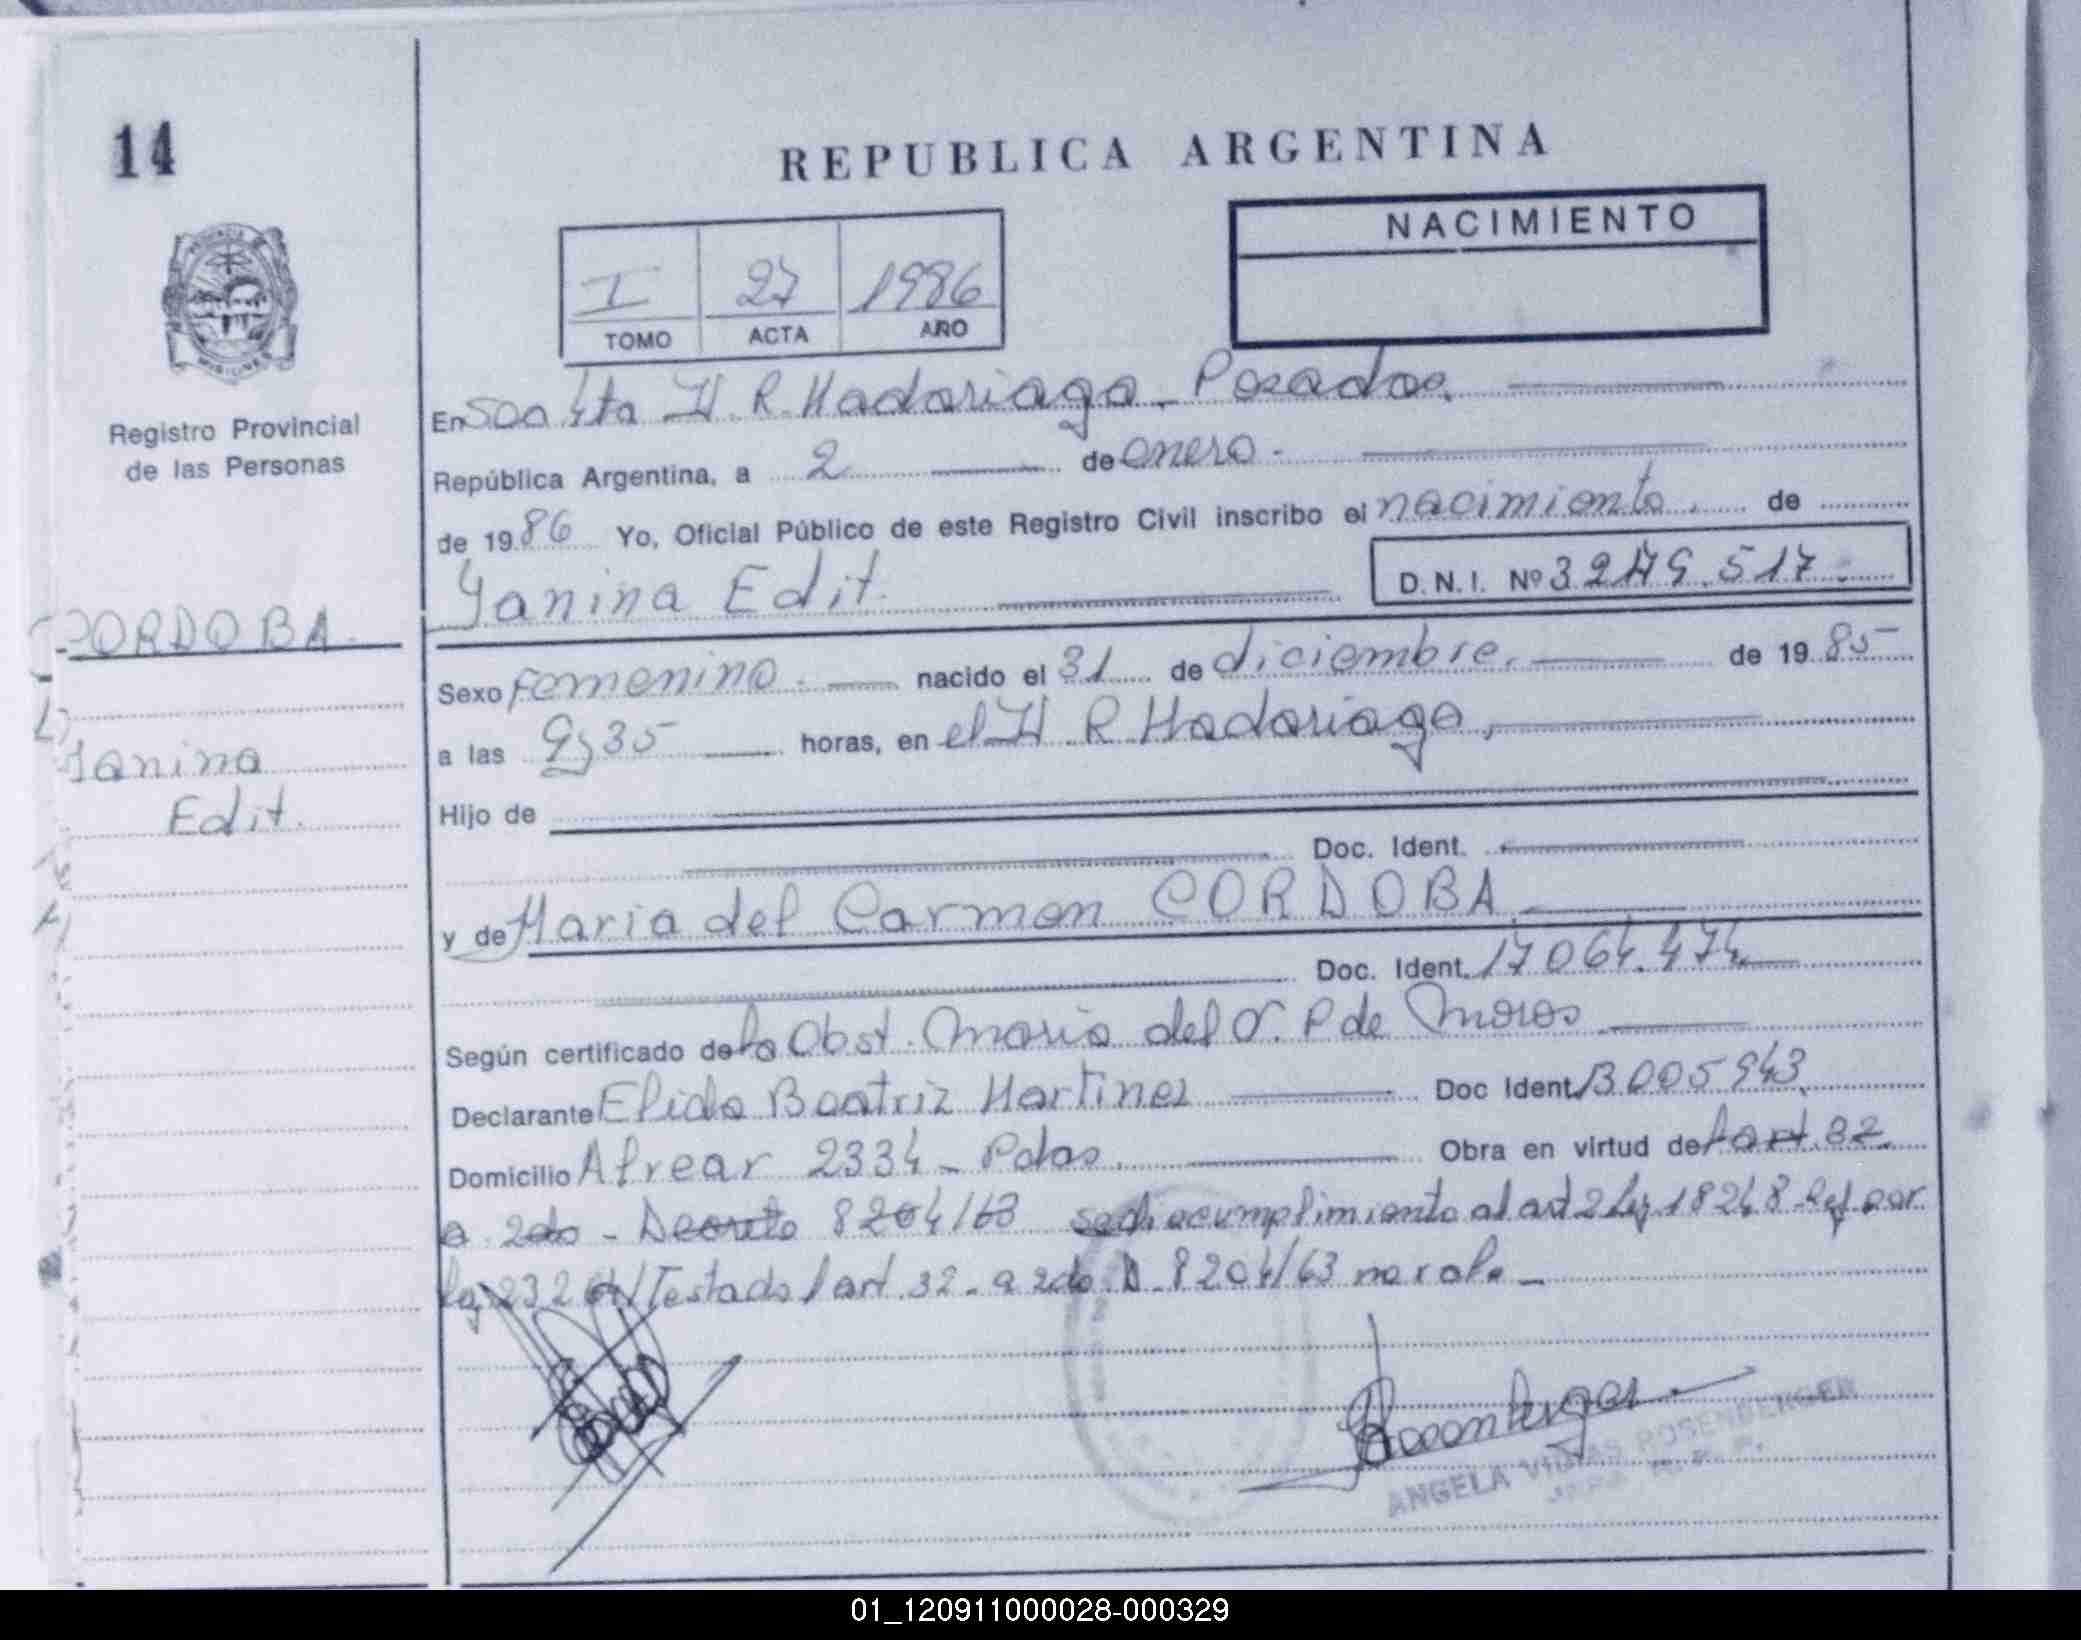 14
REPUBLICA ARGENTINA
NACIMIENTO
I 27 1986
TOMO ACTA AÑO
Registro Provincial
de las Personas
En Secc 4ta H. R. Madariaga - Posadas.
República Argentina, a 2 de enero.
de 1986 Yo, Oficial Público de este Registro Civil inscribo el nacimiento. de
Yanina Edit. D.N.I. Nº
CORDOBA.
Yanina
Edit.
Sexo femenino. nacido el 31 de diciembre. de 1985
a las 9,35 horas, en el H R Madariaga,
Hijo de
Doc. Ident.
y de Maria del Carmen CORDOBA
Doc. Ident. 17064.474
Según certificado de la Obst. Maria del P de
Declarante Elida Beatriz Martinez Doc Ident. 3005943.
Domicilio Alvear 2334 - Pdas. Obra en virtud del art. 32.
a 2do - Decreto 8204/63 se dio cumplimiento al art 2 Ley 18248 - Ref por
Ley Testado / art. 32 - a 2do D - 8204/63 no vale. -
ANGELA ROSENBERGER
01_120911000028-000329